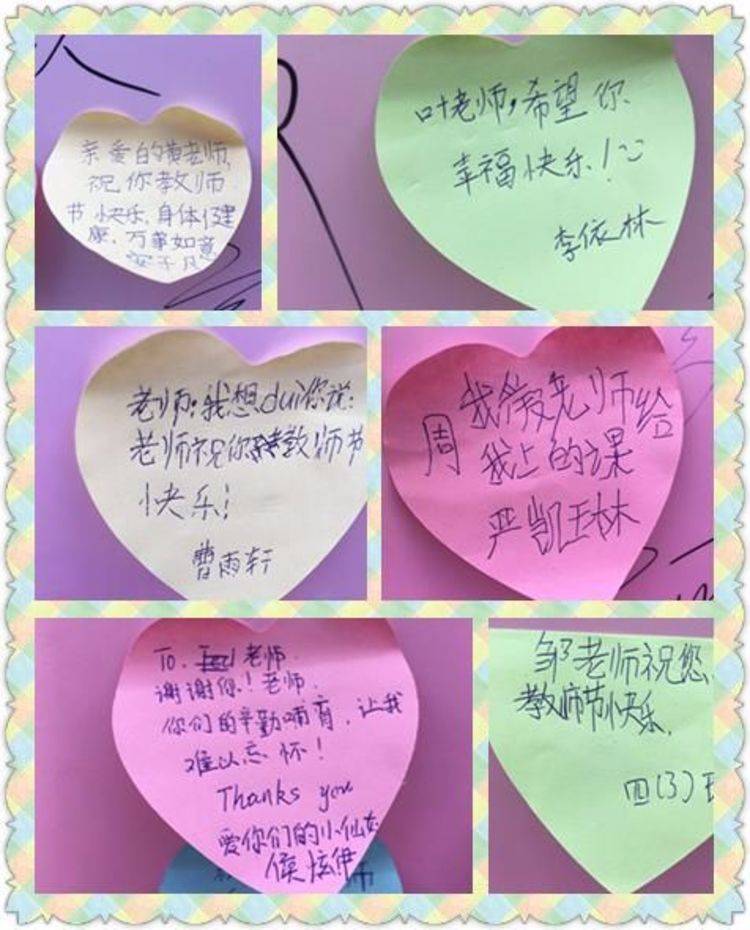 亲爱的黄老师,
祝你教师
节快乐,身体健
康,万事如意
叶老师,希望你
幸福快乐!
李依林
老师:我想dui你说:
老师祝你教师节
快乐!
曹雨轩
我爱周老师给
我上的课
严凯琳
To. 老师.
谢谢你!老师.
你们的辛勤哺育,让我
难以忘怀!
Thanks you
爱你们的小仙女
邹老师祝您
教师节快乐.
四(3)